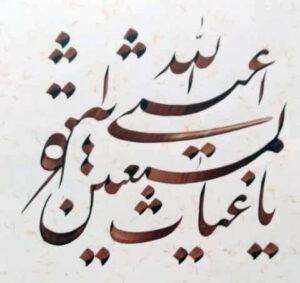 الله
اغثنی
یا غیاث المستغیثین